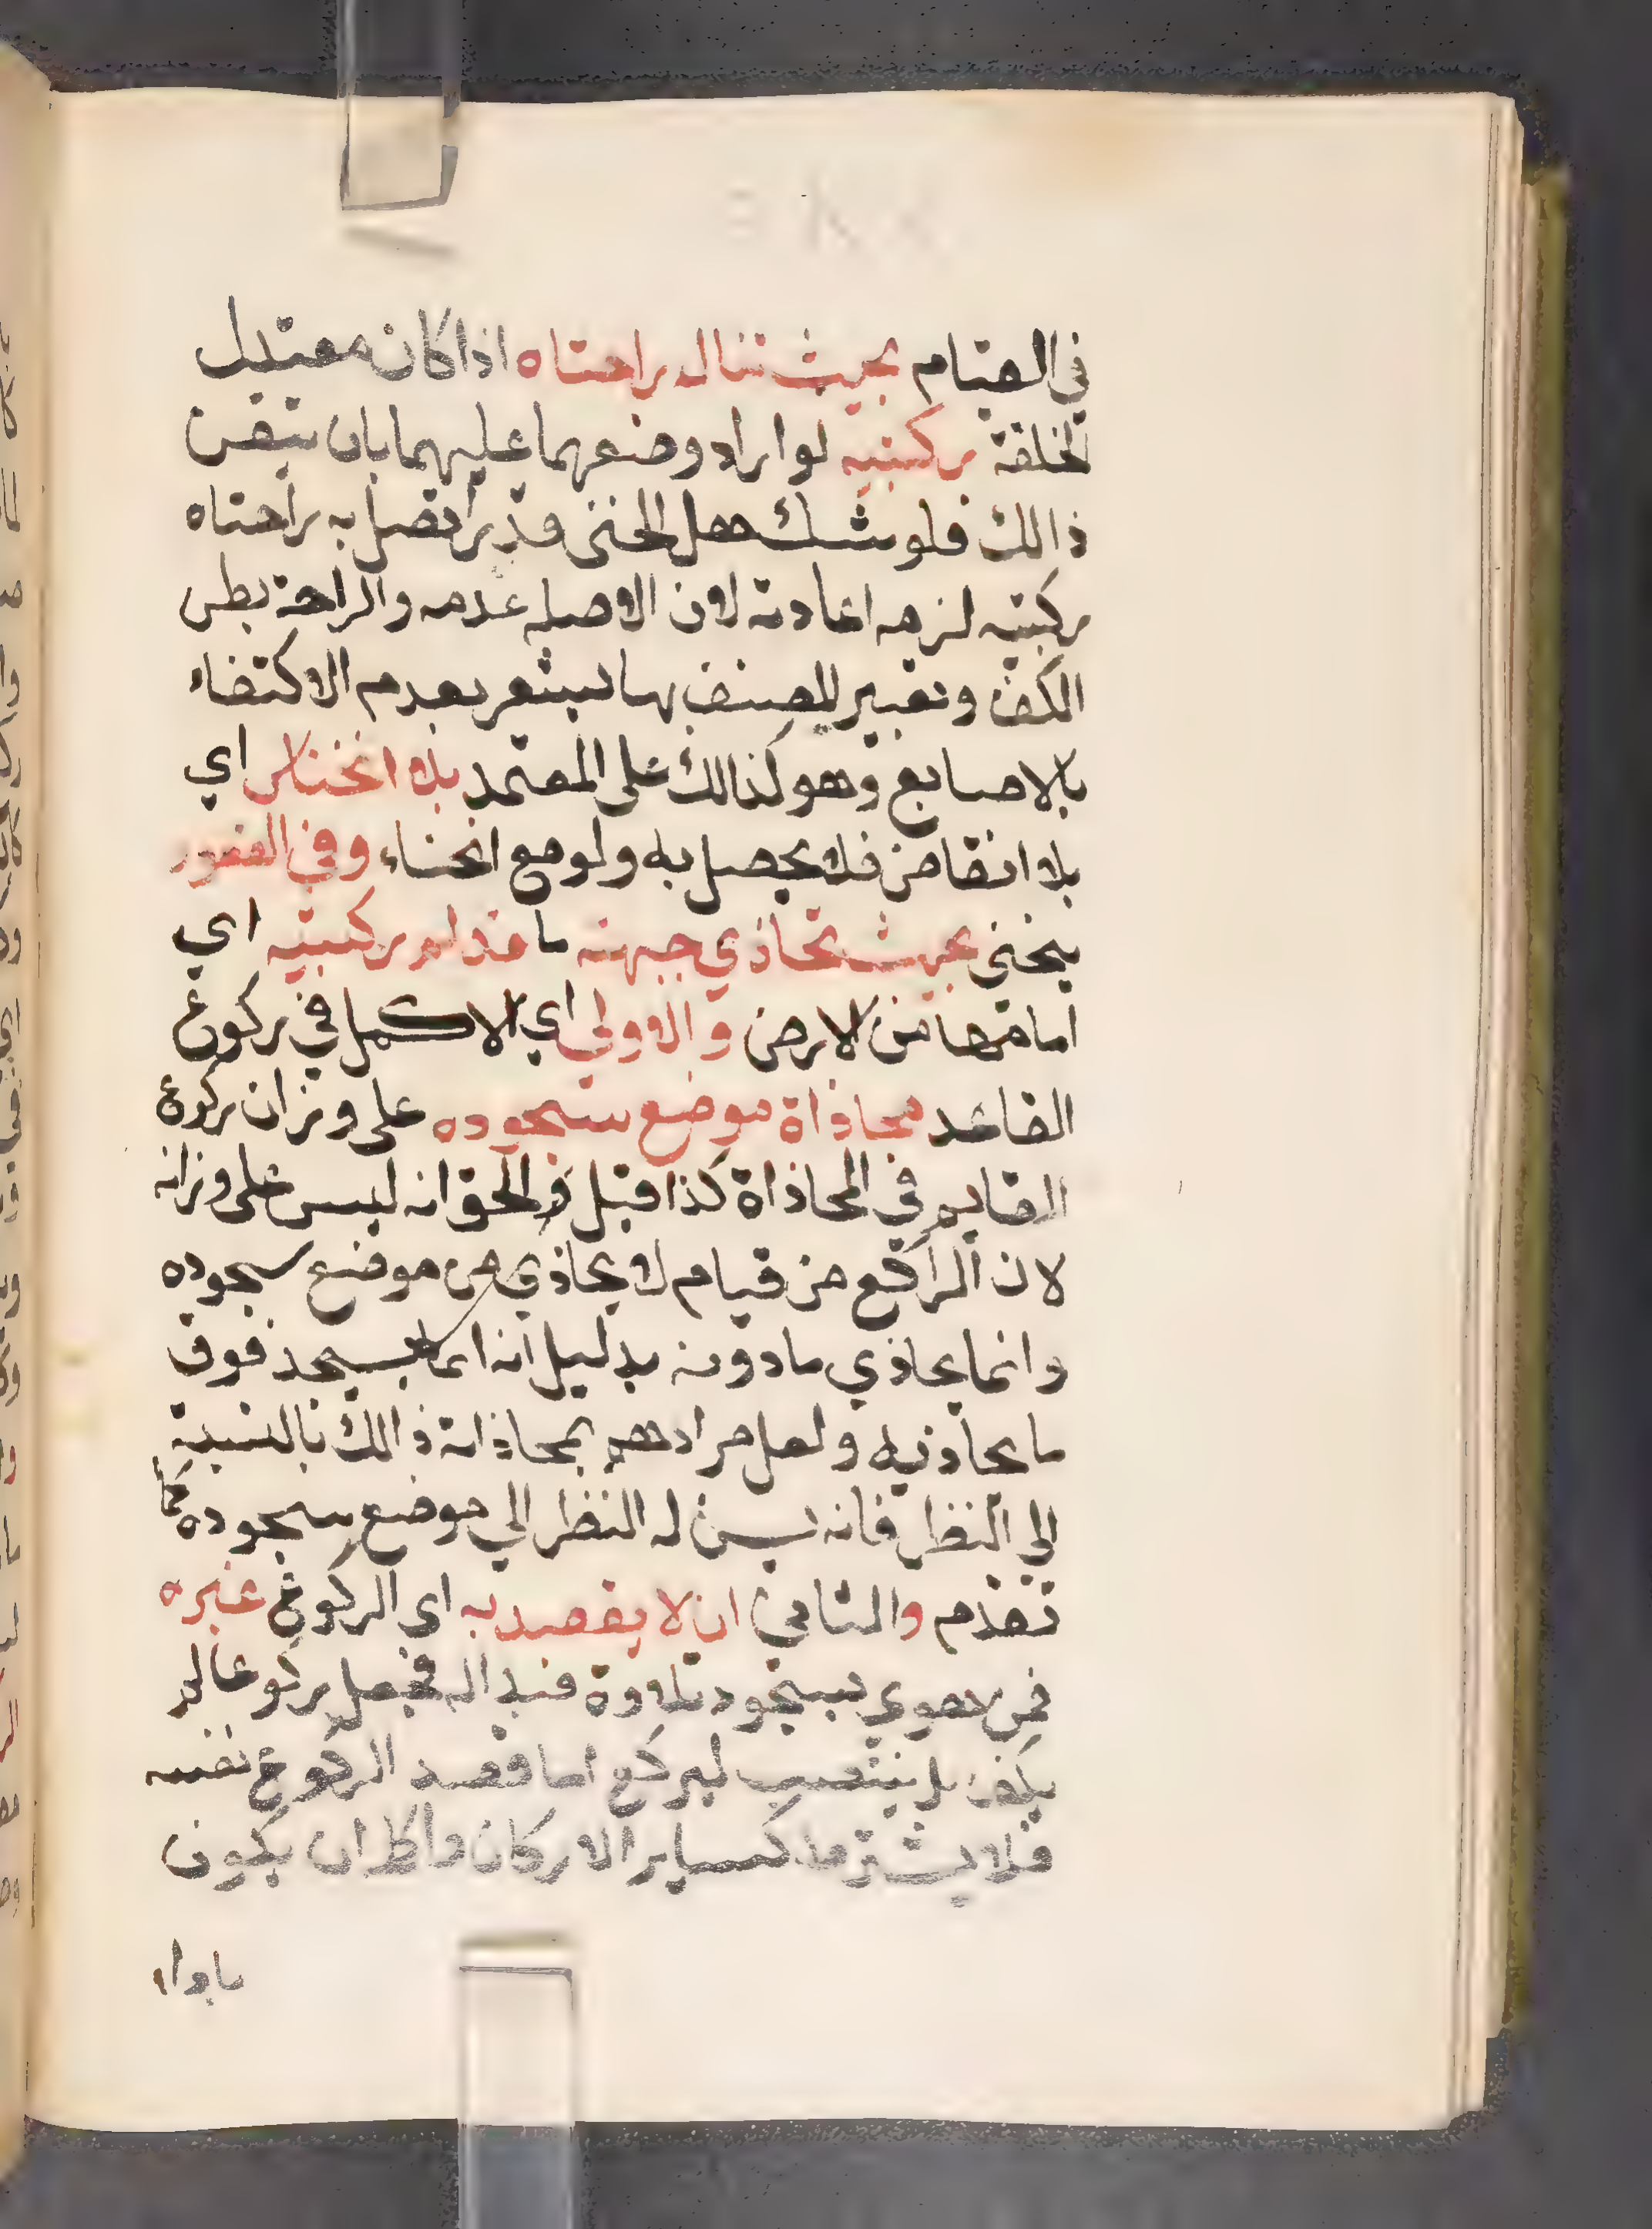 في القيام بحيث تنال راحتاه اذا كان معتدل
الخلقة ركبتيه لو اراد وضعهما عليهما بان تيقن
ذالك فلو شك هل انحنى قدرا تصل به راحتاه
ركبتيه لزمه اعادته لان الاصل عدمه والراحة بطن
الكف وتعبير المصنف بها يشعر بعدم الاكتفاء
بالاصابع وهو كذالك على المعتمد بلا انخناس اي
بلا انقاض فلا يحصل به ولو مع انحناء وفي القعود
ينحني بحيث تحاذي جبهته ما قدام ركبتيه اي
امامها من الارض والاولى اي الاكمل في ركوع
القاعد محاذاة موضع سجوده على وزان ركوع
القايم في المحاذاة كذا قيل والحق انه ليس على وزانه
لان الراكع من قيام لا يحاذي من موضع سجوده
وانما يحاذي مادونه بدليل انه انما يسجد فوق
ما يحاذيه ولعل مرادهم بمحاذاته ذالك بالنسبة
الى النظر فانه يسن له النظر الى موضع سجوده كما
تقدم والثاني ان لا يقصد به اي الركوع غيره
فمن هوي لسجود تلاوة فبدا له فجعل ركوعا لم
يكف بل ينتصب ليركع اما قصد الركوع نفسه
فلا يشترط كساير الاركان واكله ان يكون